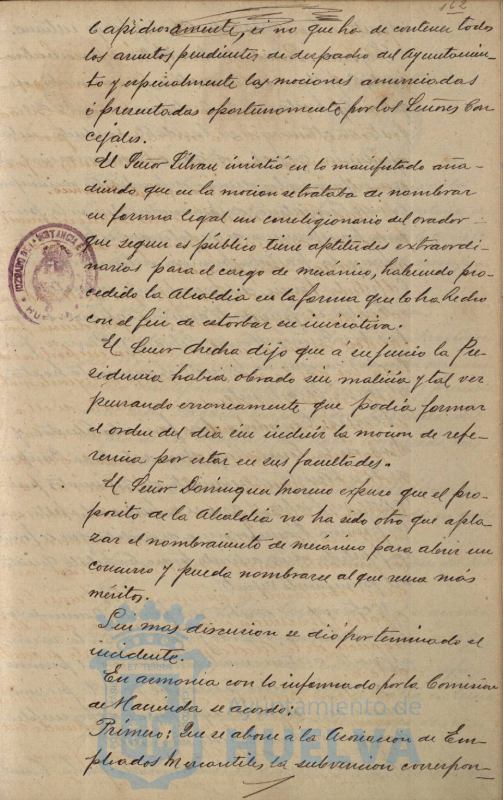 162
Capidrosamente, si no que ha de contener todos
los asuntos pendientes de despacho del Ayuntamien-
to y especialmente las mociones anunciadas
ó presentadas oportunamente por los Señores Con-
cejales.
El Señor insistió en lo manifestado aña-
diendo que en la mocion se trataba de nombrar
en forma legal un correligionario del orador
que segun es público tiene aptitudes extraordi-
narias para el cargo de mecánico, habiendo pro-
cedido la Alcaldia en la forma que lo ha hecho
con el fin de estorbar su iniciativa.
El Señor dijo que á su juicio la Pre-
sidencia habia obrado sin malicia y tal vez
pensando erroneamente que podia formar
el orden del dia sin incluir la mocion de refe-
rencia por estar en sus facultades.
El Señor Dominguez Moreno expuso que el pro-
posito de la Alcaldia no ha sido otro que apla-
zar el nombramiento de mecánico para abrir un
concurso y pueda nombrarse al que reuna más
méritos.
Sin mas discusion se dió por terminado el
incidente.
En armonia con lo informado por la Comision
de Hacienda se acordo:
Primero: Que se abone á la Asociacion de Em-
pleados Mercantiles la subvencion correspon-
JUZGADO DE 1ª INSTANCIA
HUELVA
Ayuntamiento de
HUELVA